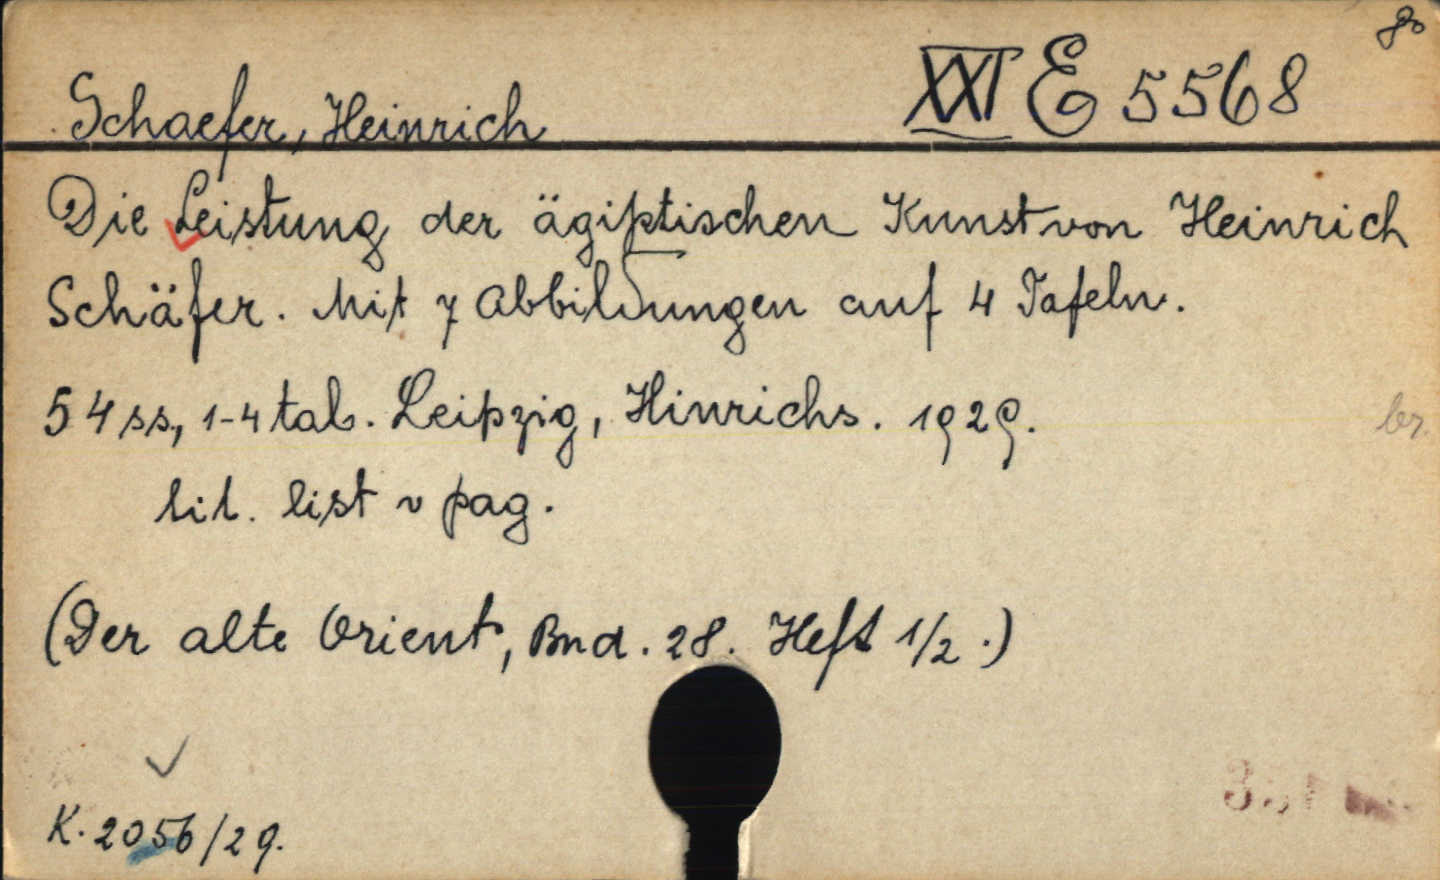 8o
XXI E 5568
Schaefer, Heinrich
Die Leistung der ägiptischen Kunst von Heinrich
Schäfer. Mit 7 Abbildungen auf 4 Tafeln.
54 ss., 1-4 tab. Leipzig, Hinrichs. 1929.
br.
list v pag.
(Der alte Orient, Bnd. 28. Heft 1/2.)
K. 2056/29.